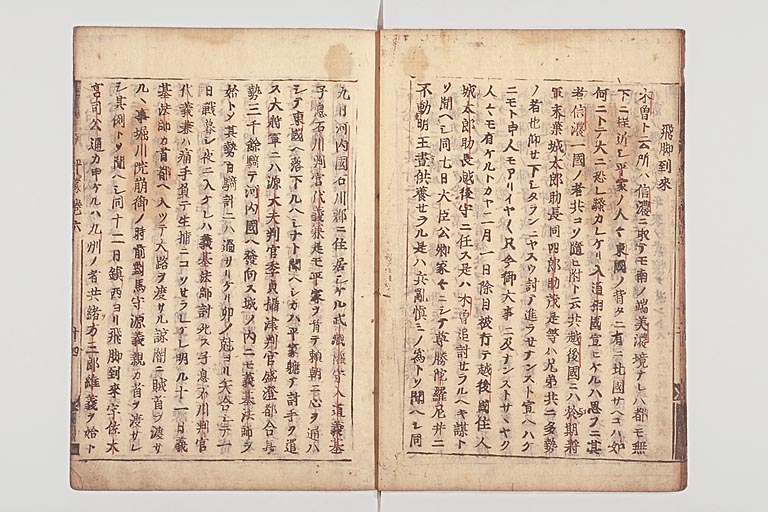 飛脚到来
木曽ト云所ハ信濃ニ取テモ南ノ端美濃境ナレハ都モ無
下ニ程近シ平家ノ人々東國ノ背タニ有ニ北國サヘコハ如
何ニトテ大ニ恐レ騒カレケリ入道相國宣ヒケルハ思フニ其
者信濃一國ノ者共コソ随ヒ附ト云共越後國ニハ余五將
軍末葉城太郎助長同四郎助茂是等ハ兄弟共ニ多勢
ノ者也仰セ下シタランニヤスウ討テ進ラセナンスト宣ヘハケ
ニモト申人モアリイヤ〱只今御大事ニ及ナンストサヽヤク
人々モ有ケルトカヤ二月一日除目被行テ越後國住人
城太郎助長越後守ニ任ス是ハ木曽追討セラルヘキ謀ト
ソ聞ヘシ同七日大臣公卿家々ニシテ尊勝陀羅尼并ニ
不動明王書供養セラル是ハ兵亂愼ミノ為トソ聞ヘシ同
九日河内國石川郡ニ住居シケル武藏權守入道義基
子息石川判官代義兼是モ平家ヲ背テ頼朝ニ心ヲ通ハ
シテ東國ヘ落下ルヘシナト聞ヘシカハ平家軈テ討手ヲ遣
ス大將軍ニハ源大夫判官季貞攝津判官盛澄都合其
勢三千餘騎テ河内國ヘ發向ス城ノ内ニモ義基法師ヲ
始トメ其勢百騎計ニハ過サリケリ卯ノ尅ヨリ矢合シテ一
日戰暮シ夜ニ入ケレハ義基法師討死ス子息石川判官
代義兼ハ痛手負テ生捕ニコソセラレケレ明ル十一日義
基法師カ首都ヘ入ツテ大路ヲ渡サル諒闇ニ賊首ヲ渡サ
ルヽ事堀川院崩御ノ時前對馬守源義親カ首ヲ渡サレ
シ其例トソ聞ヘシ同十二日鎮西ヨリ飛脚到来宇佐大
宮司公通カ申ケルハ九州ノ者共緒方三郎維義ヲ始ト